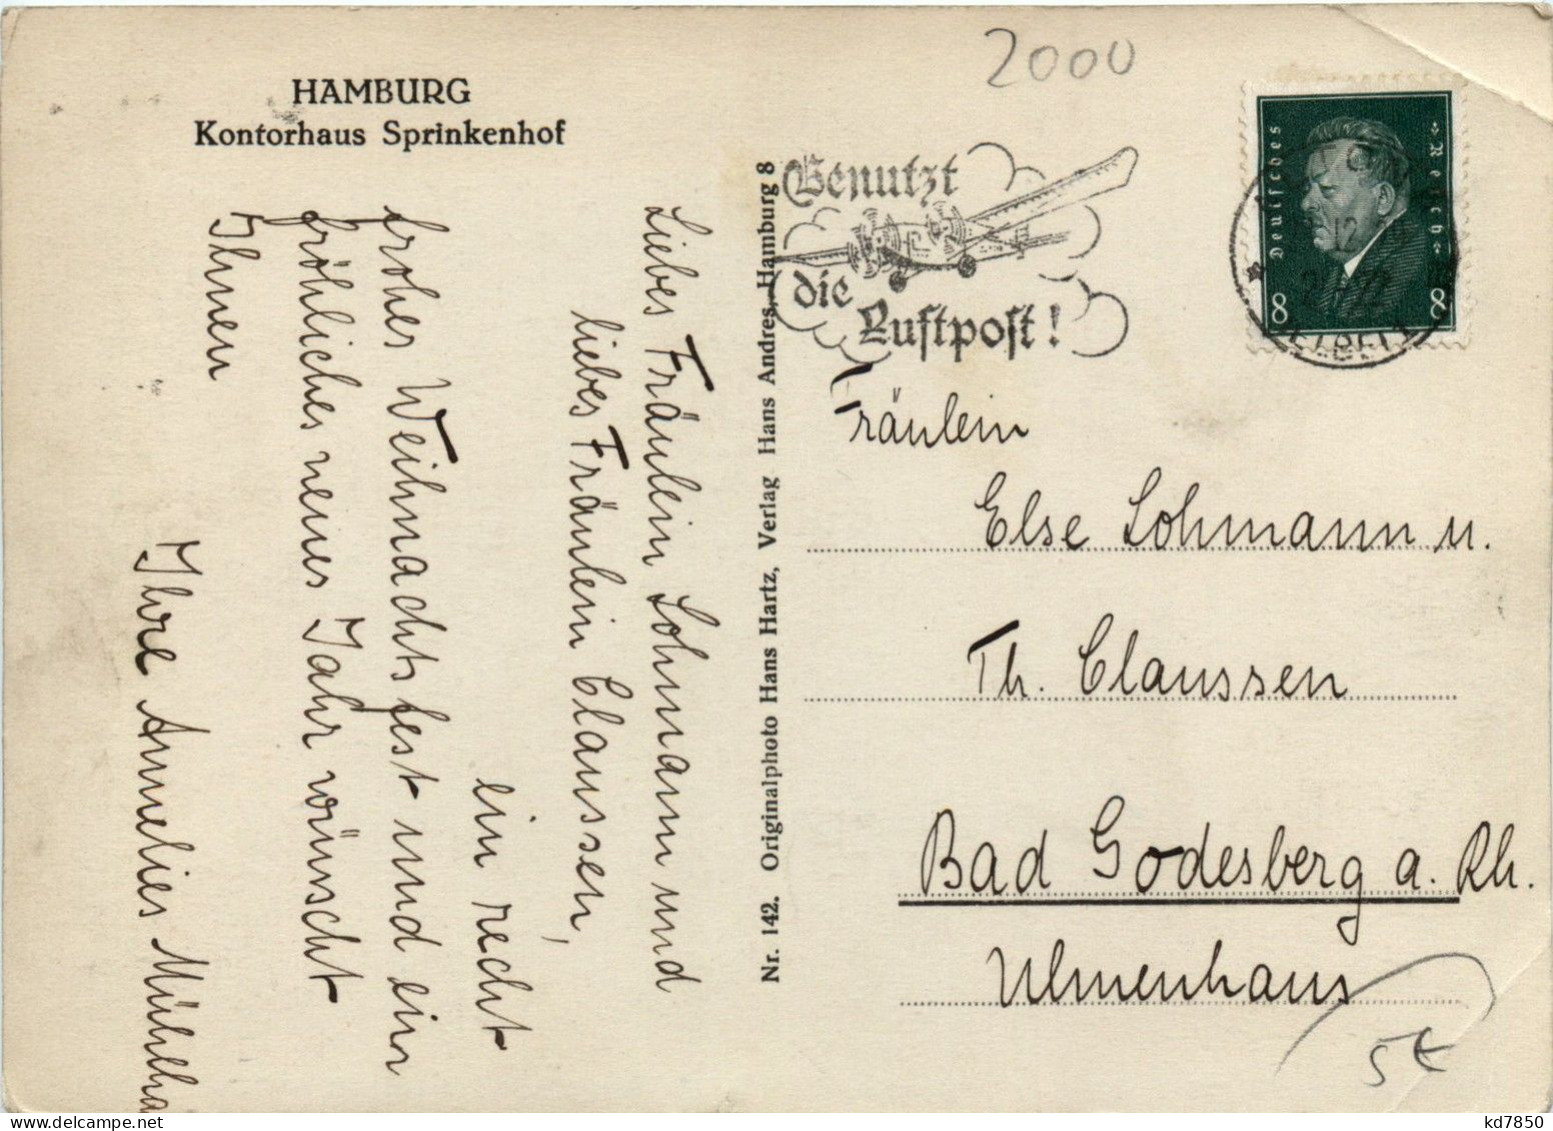 HAMBURG
Kontorhaus Sprinkenhof
Liebes Fräulein Lohmann und
liebes Fräulein Claussen,
ein recht
frohes Weihnachtsfest und ein
fröhliches neues Jahr wünscht
Ihnen
Ihre Annelies
Nr. 142. Originalphoto Hans Hartz, Verlag Hans Andres, Hamburg 8
2000
Benutzt
die
Luftpost!
Deutsches Reich
8 8
Fräulein
Else Lohmann u.
Th. Claussen
Bad Godesberg a. Rh.
Ulmenhaus
5€
kd7850